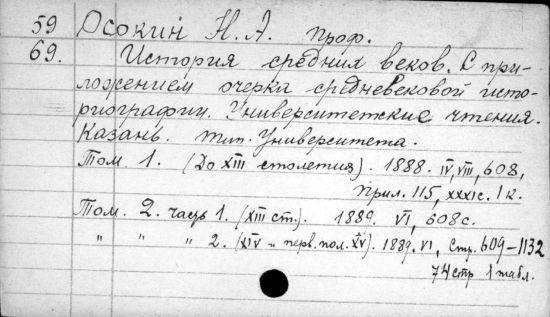 59 Осокин Н. А. проф.
69. История средних веков. С при-
ложением очерка средневековой исто-
риографии. Университетские чтения.
Казань. тип. Университета.
Том. 1. (До XIII столетия). 1888. IV, VIII, 608,
прил. 115, XXXI с. 1 к.
Том. 2. часть 1. (XIII ст.). 1889. VI, 608 с.
" " " 2. (XIV и перв. пол. XV). 1889. VI, Стр. 609-1132
74 стр 1 табл.